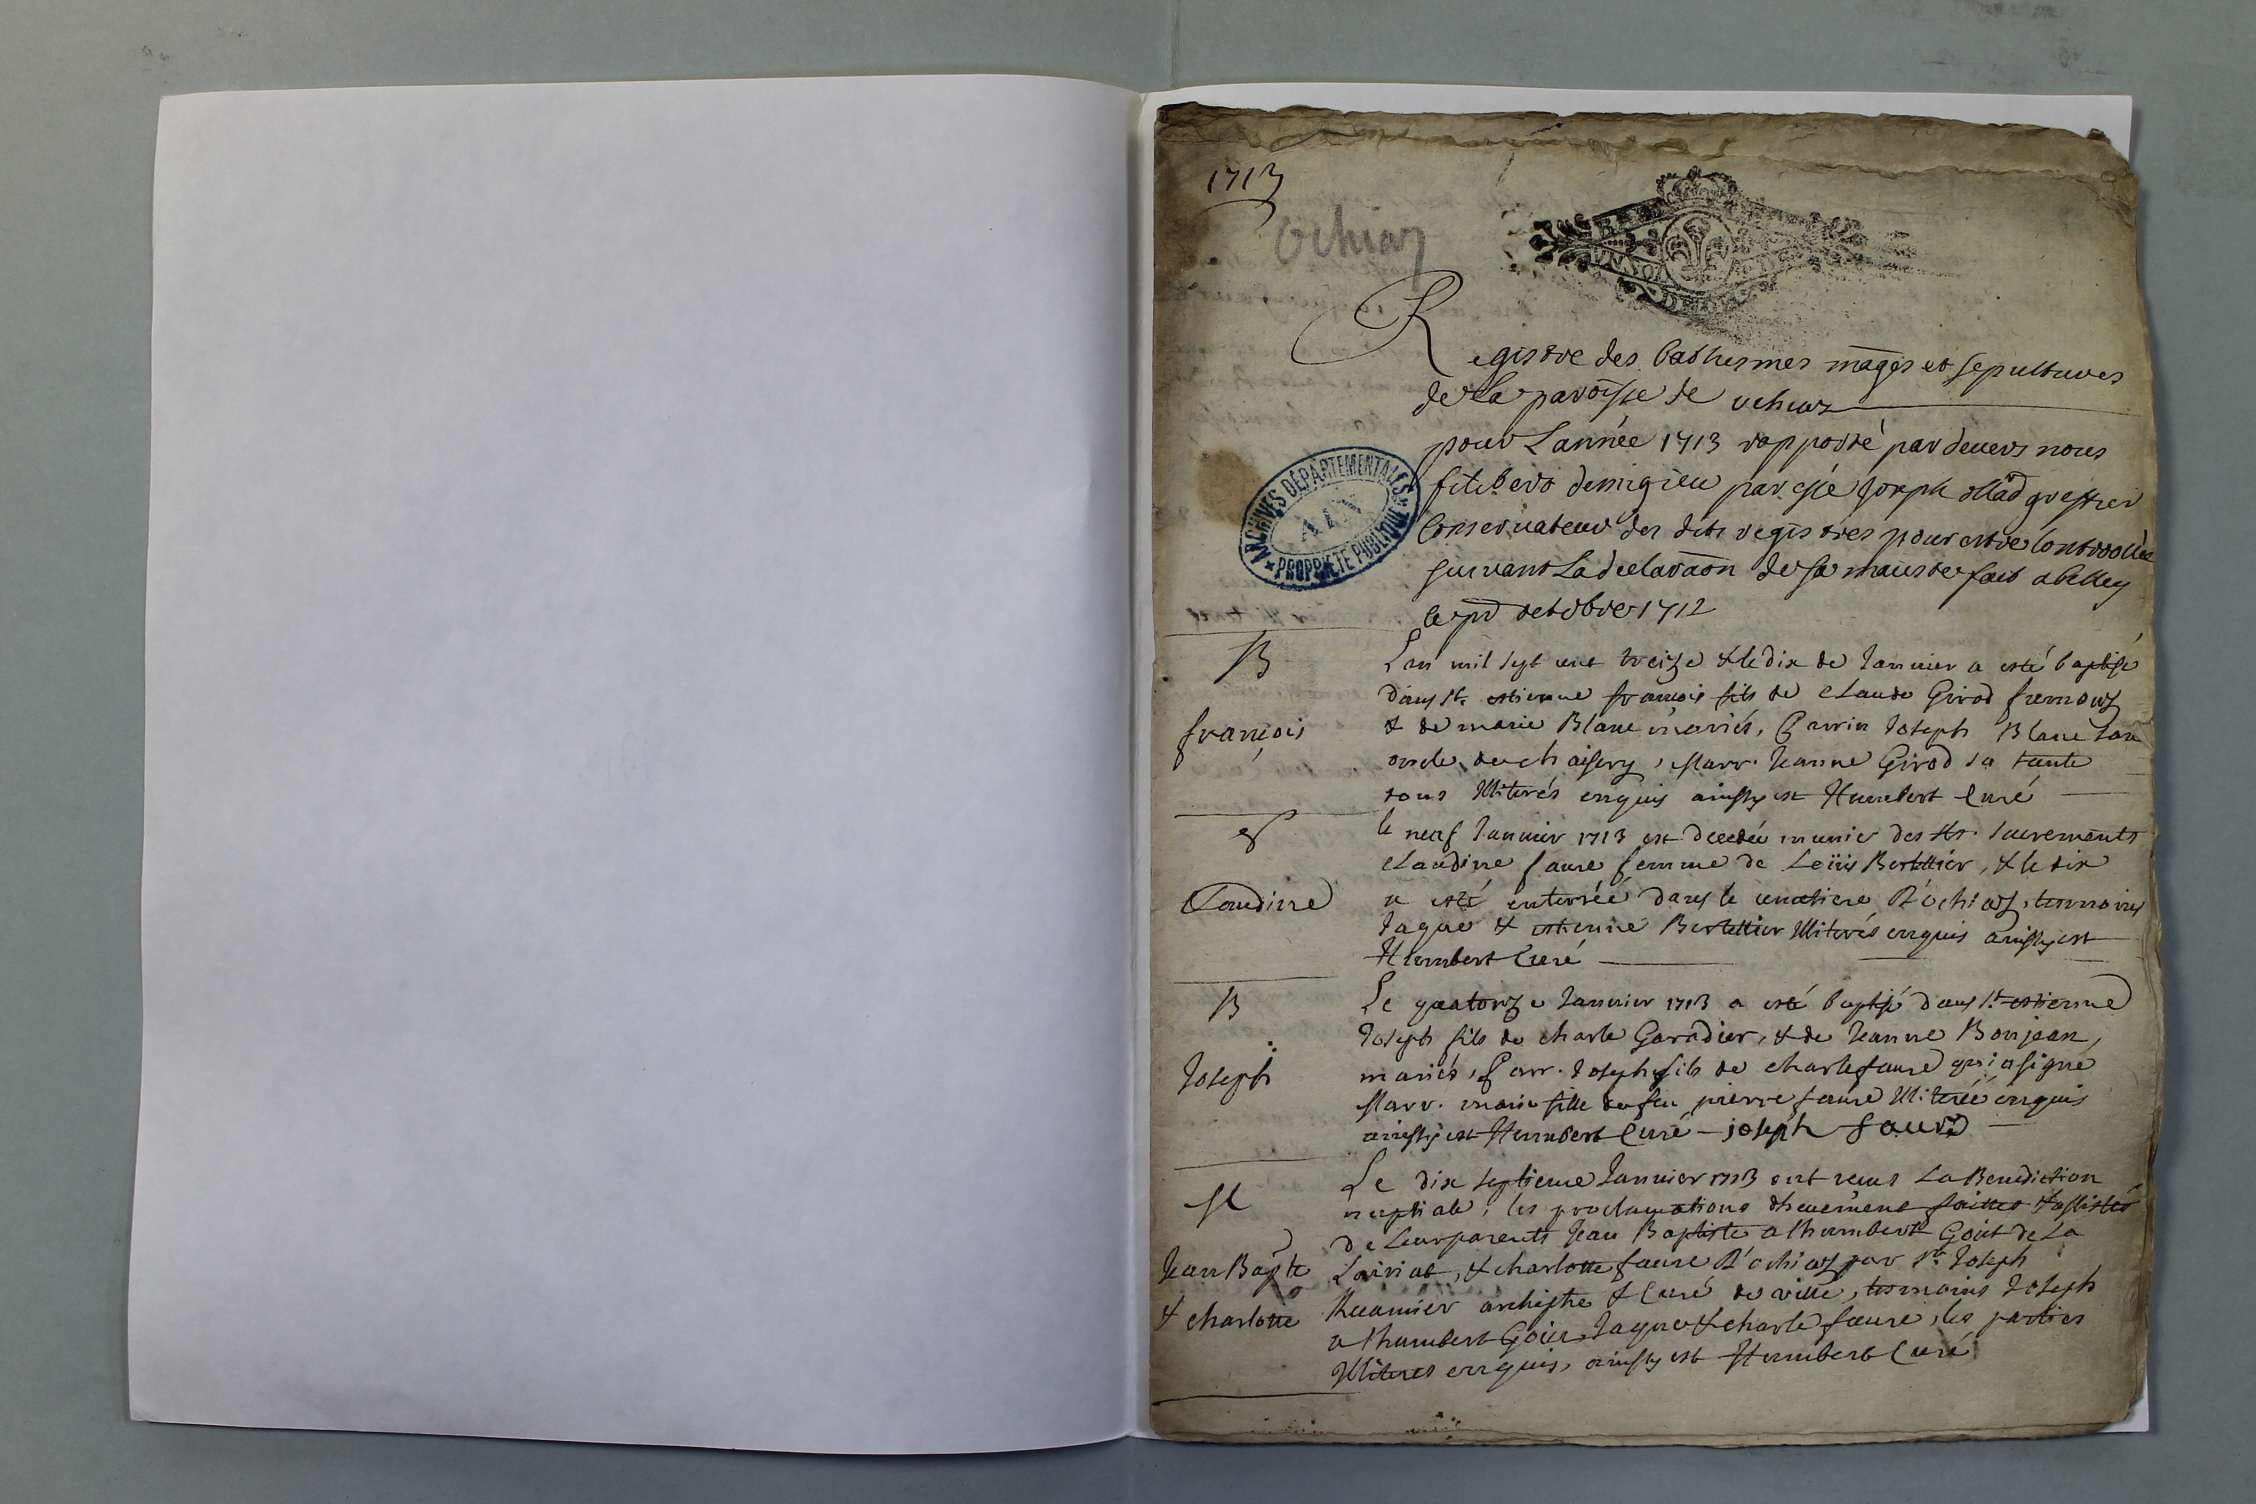 1713
Ochiaz
UN SOL
Registre des bathesmes mages et sepultures
de la paroisse de ochiaz
pour Lannée 1713 rapporté par deuers nous
filibert demigieu par Joseph greffier
Conseruateur des dits registres pour estre Controollée
suiuant La declaraon de sa maieste fait a belley
le pr octobre 1712
ARCHIVES DÉPARTEMENTALES
AIN
PROPRIÉTÉ PUBLIQUE
B
françois
Lan mil sept cent treize & le dix de Januier a esté baptisé
dans st. estienne françois fils de claude Girod
& de marie Blanc mariés, Parrin Joseph Blanc son
oncle de chaisery, Marr. Jeanne Girod sa tante
tous illiterés enquis ainsy est Humbert Curé
S
Claudine
le neuf Januier 1713 est decedée munie des sts. sacrements
claudine faure femme de Loüis Berthettier, & le dix
a esté enterrée dans le cimetiere d'ochiaz, temoins
Jaque & estienne Berthettier illiterés enquis ainsy est
Humbert Curé
B
Joseph
Le quatorze Januier 1713 a esté baptisé dans st. estienne
Joseph fils de charle Garadier, & de Jeanne Bonjean,
mariés, Parr. Joseph fils de charle faure qui a signé
Marr. marie fille de feu pierre faure illiterée enquis
ainsy est Humbert Curé - joseph faure
M
Jean Bapte
& charlotte
Le dix septieme Januier 1713 ont receus La Benediction
nuptiale, les proclamations dheuement faittes & assistés
de Leur parents Jean Baptiste alhumbert Goüt de La
& charlotte faure d'ochiaz par sr. Joseph
archiptre & Curé de ville, temoins Joseph
alhumbert Goüt Jaque & charle faure, les parties
illiteres enquis, ainsy est Humbert Curé